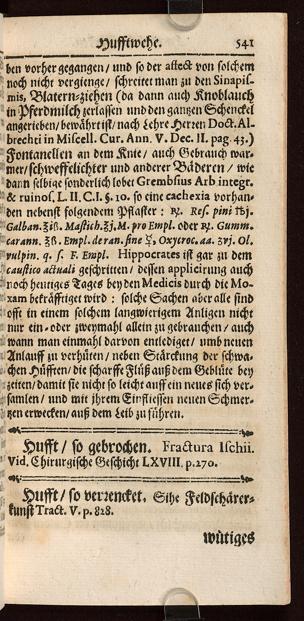 Hufftwehe. 541
ben vorher gegangen / und so der affect von solchem
noch nicht vergienge / schreitet man zu den Sinapis-
mis, Blatern-ziehen (da dann auch Knoblauch
in Pferdmilch zerlassen und den gantzen Schenckel
angerieben / bewährt ist / nach Lehre Herren Doct. Al-
brechti in Miscell. Cur. Ann. V. Dec. II. pag. 43.)
Fontanellen an dem Knie / auch Gebrauch war-
mer / schweffelichter und anderer Bäderen / wie
dann selbige sonderlich lobet Grembsius Arb integr.
& ruinos, L. II. C. I. §. 10. so eine cachexia vorhan-
den nebenst folgendem Pflaster: ℞. Res. pini ℔j.
Galban. ℥iß. Mastich. ℥j. M. pro Empl. oder ℞. Gumm.
carann. ℥ß. Empl. de ran. sine ☿, Oxycroc. aa. ʒvj. Ol.
vulpin. q. s. F. Empl. Hippocrates ist gar zu dem
caustico actuali geschritten / dessen applicirung auch
noch heutiges Tages bey den Medicis durch die Mo-
xam bekräfftiget wird: solche Sachen aber alle sind
offt in einem solchem langwierigem Anligen nicht
nur ein- oder zweymahl allein zu gebrauchen / auch
wann man einmahl darvon entlediget / umb neuen
Anlauff zu verhüten / neben Stärckung der schwa-
chen Hüfften / die scharffe Flüß auß dem Geblüte bey
zeiten / damit sie nicht so leicht auff ein neues sich ver-
samlen / und mit ihrem Einfliessen neuen Schmer-
tzen erwecken / auß dem Leib zu führen.
Hufft / so gebrochen. Fractura Ischii.
Vid. Chirurgische Geschicht LXVIII. p. 270.
Hufft / so verrencket. Sihe Feldschärer-
kunst Tract. V. p. 828.
wütiges